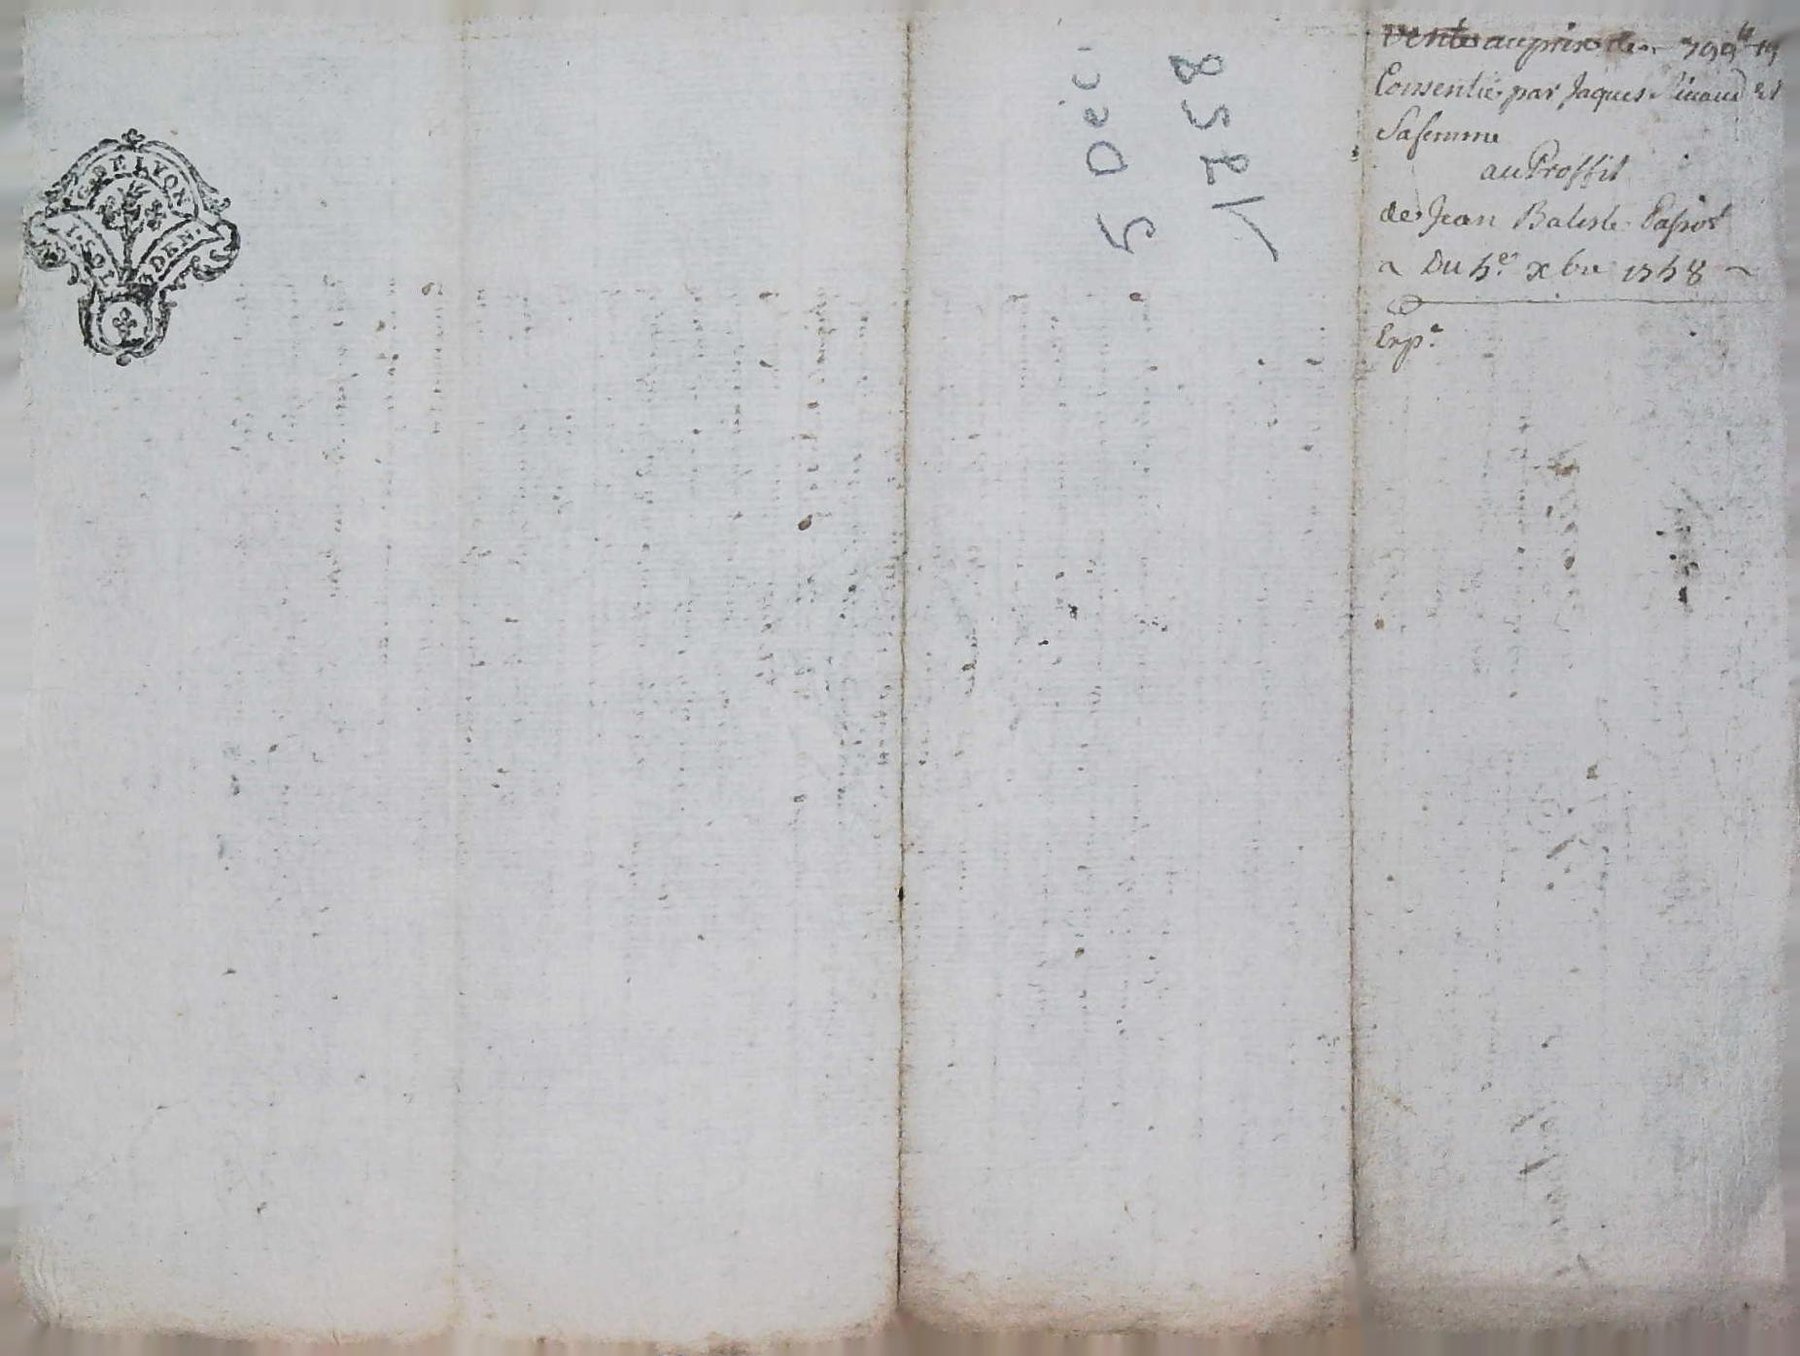 G. DE LYON
1. SOL. DEN.
5 Déc
1758
vente au prix de 799lt 19
Consentie par Jaques et
Safemme
au Proffit
de Jean Batiste
Du 5e xbre 1758
Expe